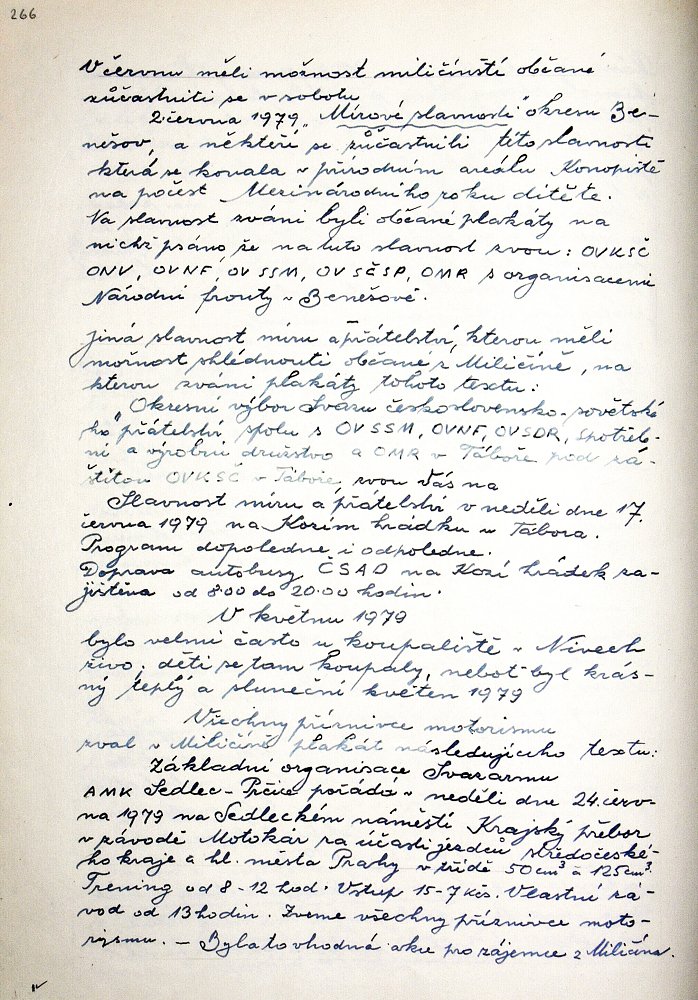 266
V červnu měli možnost miličínští občané
zůčastniti se v sobotu
2 června 1979 „Mírové slavnosti" okresu Be-
nešov, a někteří se zůčastnili této slavnosti
která se konala v přírodním areálu Konopiště
na počest Mezinárodního roku dítěte.
Na slavnost zváni byli občané plakáty na
nichž psáno že na tuto slavnost zvou: OVKSČ
ONV, OVNF, OV SSM, OV SČSP, OMR s organisacemi
Národní fronty v Benešově.
Jiná slavnost míru a přátelství, kterou měli
možnost shlédnouti občané z Miličíně, na
kterou zváni plakáty tohoto textu:
„Okresní výbor Svazu československo-sovětské
ho přátelství, spolu s OV SSM, OVNF, OVSDR, Spotřeb-
ní a výrobní družstvo a OMR v Táboře pod zá-
štitou OVKSČ v Táboře zvou Vás na
Slavnost míru a přátelství v neděli dne 17.
června 1979 na Kozím hrádku u Tábora.
Program dopoledne i odpoledne.
Doprava autobusy ČSAD na Kozí hrádek za-
jištěna od 8.00 do 20.00 hodin.
V květnu 1979
bylo velmi často u koupaliště v Nivech
živo; děti se tam koupaly, neboť byl krás-
ný teplý a sluneční květen 1979
Všechny příznivce motorismu
zval v Miličíně plakát následujícího textu:
Základní organisace Svazarmu
AMK Sedlec-Prčice pořádá v neděli dne 24. červ-
na 1979 na Sedleckém náměstí Krajský přebor
v závodě Motokár za účasti jezdců středočeské-
ho kraje a hl. města Prahy v třídě 50 cm³ a 125 cm³.
Trening od 8-12 hod. Vstup 15-7 Kčs. Vlastní zá-
vod od 13 hodin. Zveme všechny příznivce moto-
rismu. - Byla to vhodná akce pro zájemce z Miličína.